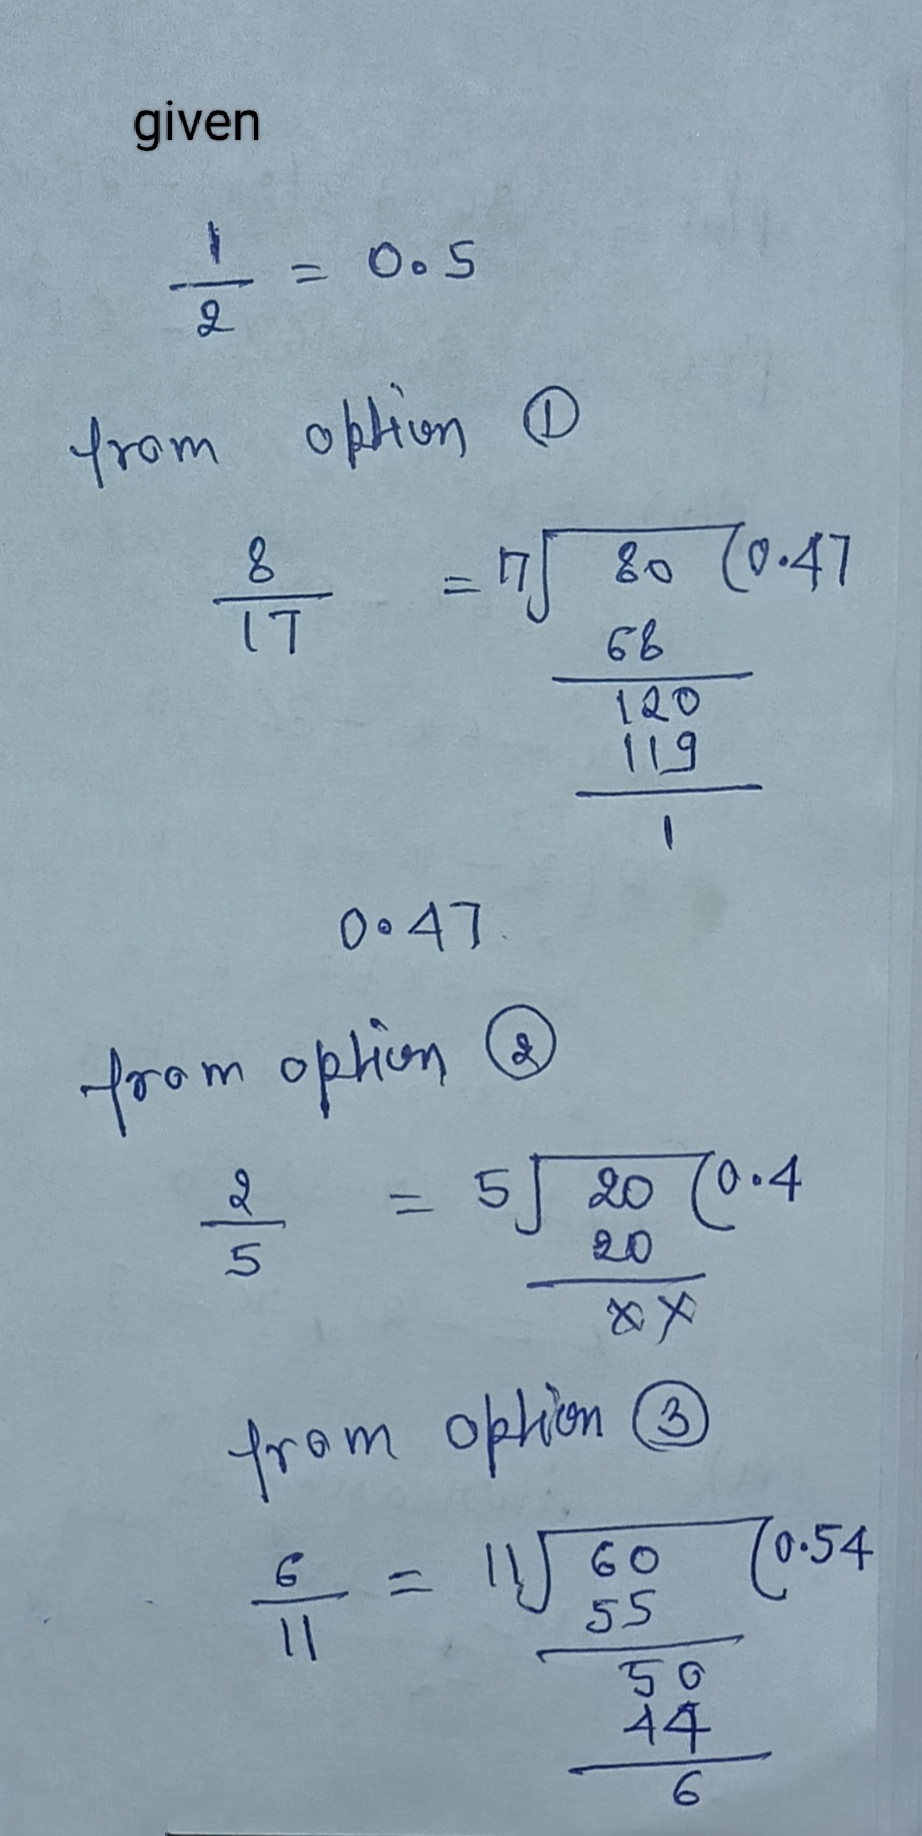 given
1/2 = 0.5
from option ①
8/17 = 17) 80 (0.47
68
120
119
1
0.47
from option ②
2/5 = 5) 20 (0.4
20
xx
from option ③
6/11 = 11) 60 (0.54
55
50
44
6